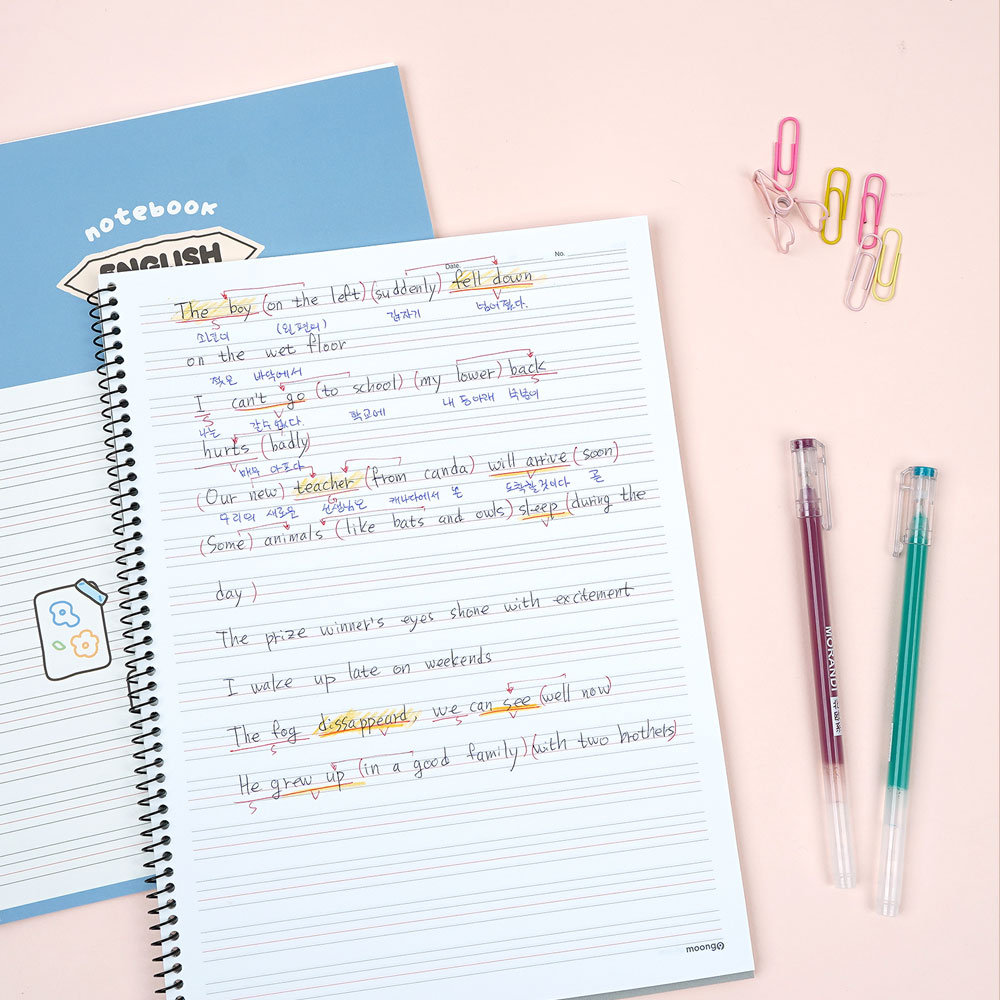 notebook
ENGLISH
Date.
No.
The boy (on the left) (suddenly) fell down
S V
소년이 (왼편의) 갑자기 넘어졌다.
on the wet floor
젖은 바닥에서
I can't go (to school) (my lower) back
S V S
나는 갈수없다. 학교에 내 등아래 부분이
hurts (badly)
V 매우 아프다
(Our new) teacher (from canda) will arrive (soon)
S V
우리의 새로운 선생님은 캐나다에서 온 도착할것이다 곧
(Some) animals (like bats and owls) sleep (during the
V
day)
The prize winner's eyes shone with excitement
I wake up late on weekends
The fog dissappeard, we can see (well now)
S V S V
He grew up (in a good family) (with two brothers)
S V
moong
MORANDI